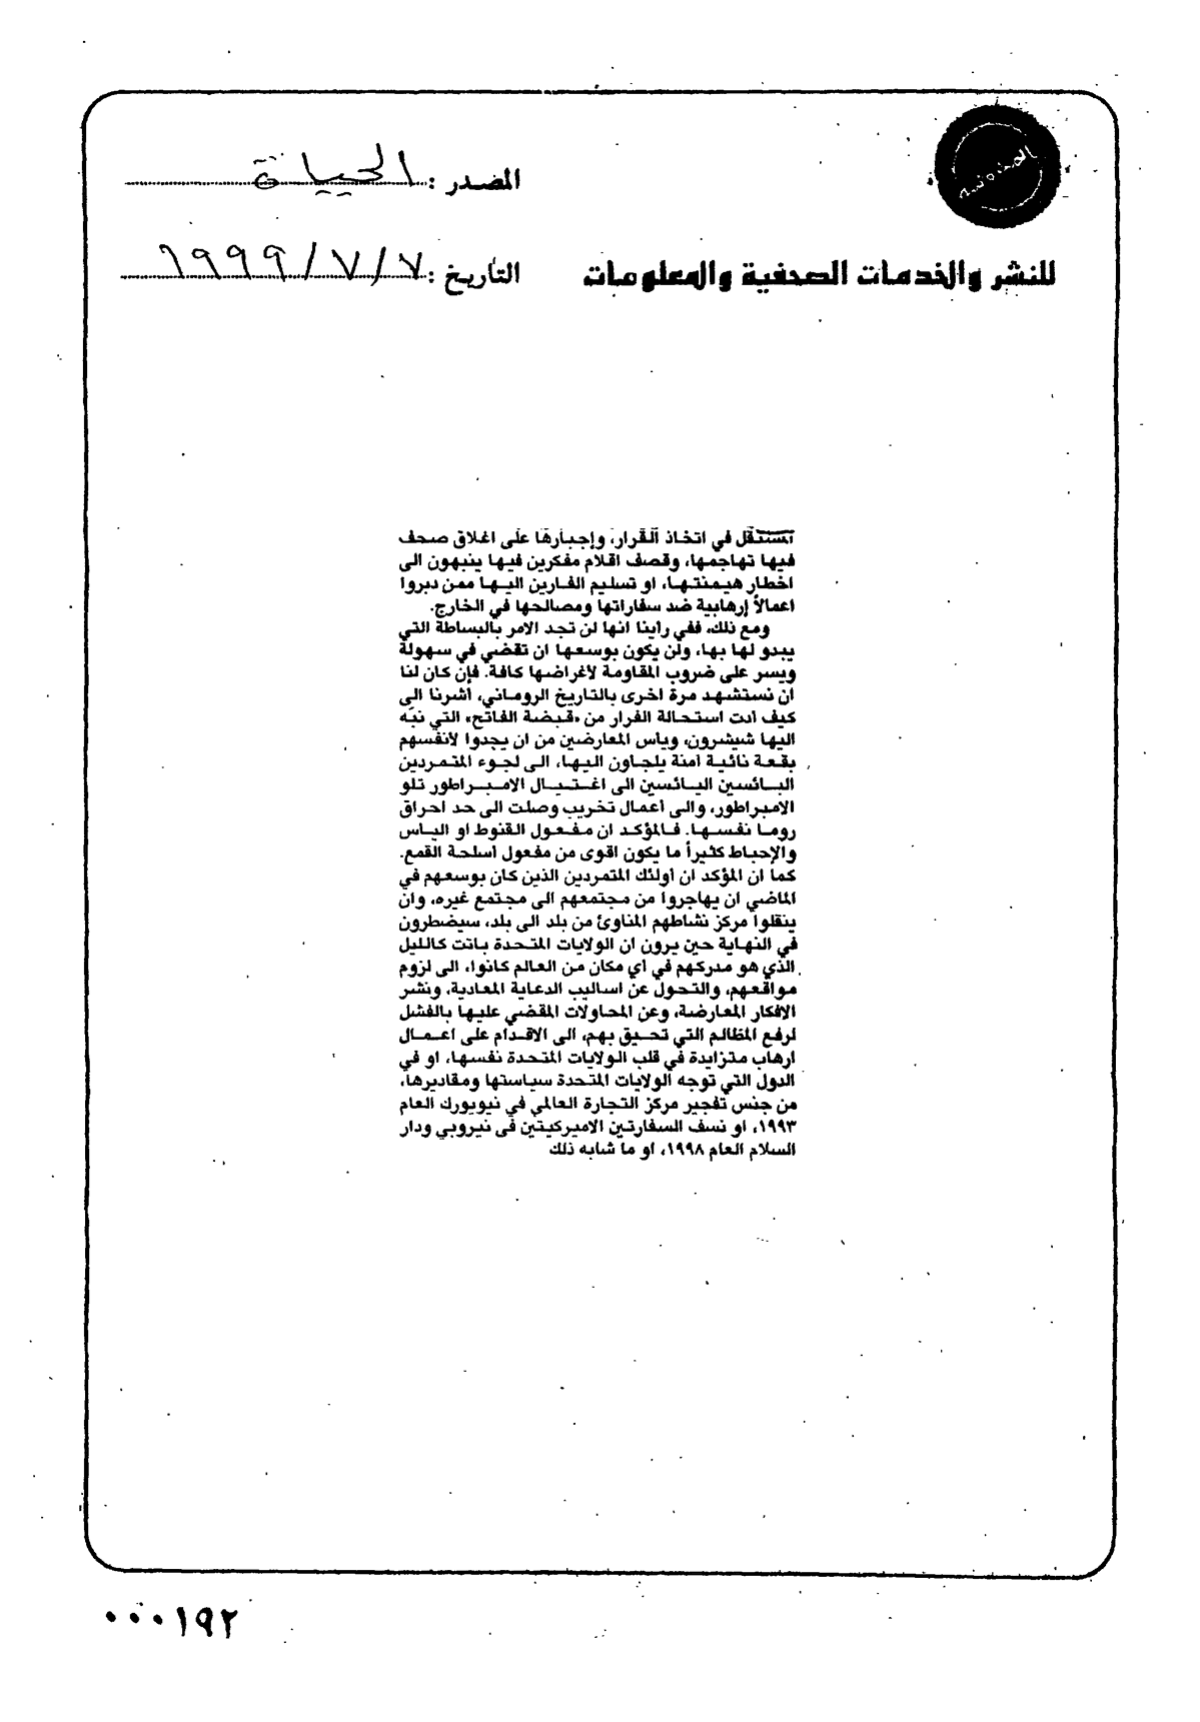 المصدر : الحياة
للنشر والخدمات الصحفية والمعلومات
التأريخ : ٧/٧/١٩٩٩
المستقل في اتخاذ القرار، وإجبارها على اغلاق صحف
فيها تهاجمها، وقصف اقلام مفكرين فيها ينبهون الى
اخطار هيمنتها، او تسليم الفارين اليها ممن دبروا
اعمالاً إرهابية ضد سفاراتها ومصالحها في الخارج.
ومع ذلك، ففي راينا انها لن تجد الامر بالبساطة التي
يبدو لها بها، ولن يكون بوسعها ان تقضي في سهولة
ويسر على ضروب المقاومة لأغراضها كافة. فإن كان لنا
ان نستشهد مرة اخرى بالتاريخ الروماني، اشرنا الى
كيف ادت استحالة الفرار من «قبضة الفاتح» التي نبّه
اليها شيشرون، وياس المعارضين من ان يجدوا لأنفسهم
بقعة نائية آمنة يلجاون اليها، الى لجوء المتمردين
البائسين اليائسين الى اغتيال الامبراطور تلو
الامبراطور، والى اعمال تخريب وصلت الى حد احراق
روما نفسها. فالمؤكد ان مفعول القنوط او الياس
والإحباط كثيراً ما يكون اقوى من مفعول اسلحة القمع.
كما ان المؤكد ان اولئك المتمردين الذين كان بوسعهم في
الماضي ان يهاجروا من مجتمعهم الى مجتمع غيره، وان
ينقلوا مركز نشاطهم المناوئ من بلد الى بلد، سيضطرون
في النهاية حين يرون ان الولايات المتحدة باتت كالليل
الذي هو مدركهم في اي مكان من العالم كانوا، الى لزوم
مواقعهم، والتحول عن اساليب الدعاية المعادية، ونشر
الافكار المعارضة، وعن المحاولات المقضي عليها بالفشل
لرفع المظالم التي تحيق بهم، الى الاقدام على اعمال
ارهاب متزايدة في قلب الولايات المتحدة نفسها، او في
الدول التي توجه الولايات المتحدة سياستها ومقاديرها،
من جنس تفجير مركز التجارة العالمي في نيويورك العام
١٩٩٣، او نسف السفارتين الاميركيتين في نيروبي ودار
السلام العام ١٩٩٨، او ما شابه ذلك
٠٠٠١٩٢